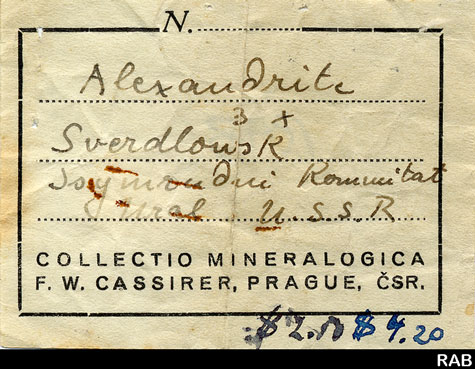 N.
Alexandrite
3 x
Sverdlovsk
Kommitat
Ural U.S.S.R
COLLECTIO MINERALOGICA
F. W. CASSIRER, PRAGUE, ČSR.
$ 4.20
RAB